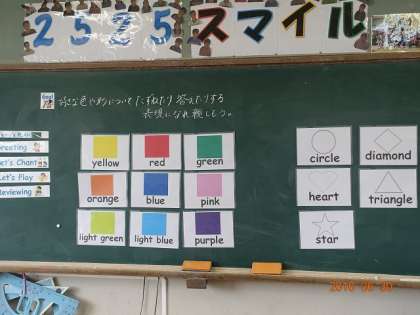 2525 スマイル
Goal
好きな色や形についてたずねたり答えたりする
表現になれ親しもう。
Greeting
Let's Chant
Let's Play
Reviewing
yellow
red
green
orange
blue
pink
light green
light blue
purple
circle
diamond
heart
triangle
star